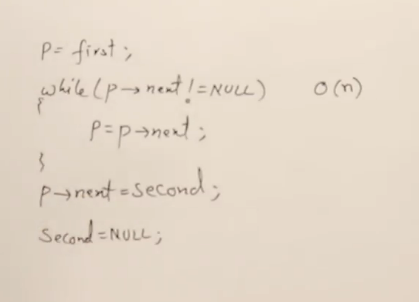 P= first;
while(p→next!=NULL) O(n)
{
P=p→next;
}
p→next=second;
Second=NULL;